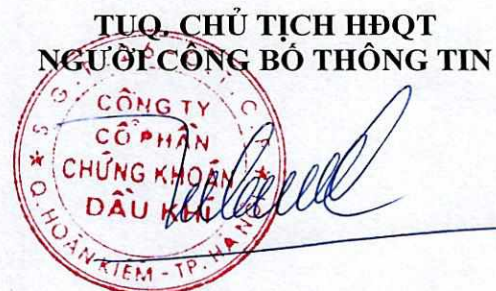 TUQ. CHỦ TỊCH HĐQT
NGƯỜI CÔNG BỐ THÔNG TIN
CÔNG TY
CỔ PHẦN
CHỨNG KHOÁN
DẦU KHÍ
Q. HOÀN KIẾM - TP. HÀ N